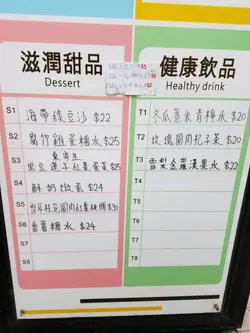 滋潤甜品
Dessert
健康飲品
Healthy drink
S1 海帶綠豆沙 $22
S2 腐竹雞蛋糖水 $25
S3 桑寄生
蓮子紅棗蛋茶 $25
S4 鮮奶燉蛋 $24
S5 雪耳桂花圓肉紅棗 $30
S6 番薯糖水 $24
S7
S8
T1 冬瓜薏米青檸水 $20
T2 玫瑰圓肉杞子茶 $20
T3 雪梨金羅漢果水 $22
T4
T5
T6
T7
T8